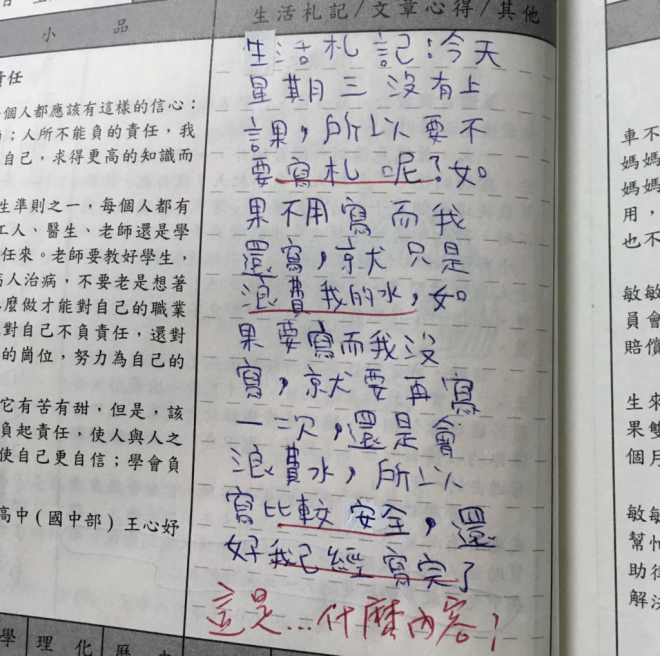 小 品
生活札記/文章心得/其他
責任
個人都應該有這樣的信心：
人所不能負的責任，我
自己，求得更高的知識而
生準則之一，每個人都有
工人、醫生、老師還是學
任來。老師要教好學生，
病人治病，不要老是想著
麼做才能對自己的職業
對自己不負責任，還對
的崗位，努力為自己的
它有苦有甜，但是，該
負起責任，使人與人之
使自己更自信；學會負
高中(國中部) 王心妤
生活札記:今天
星期三沒有上
課，所以要不
要寫札呢?如
果不用寫而我
還寫，就只是
浪費我的水，如
果要寫而我沒
寫，就要再寫
一次，還是會
浪費水，所以
寫比較安全，還
好我已經寫完了
這是...什麼內容!
車不
媽媽
媽媽
用，
也不
敏敏
員會
賠償
生來
果雙
個月
敏敏
幫忙
助律
解決
學 理 化 歷